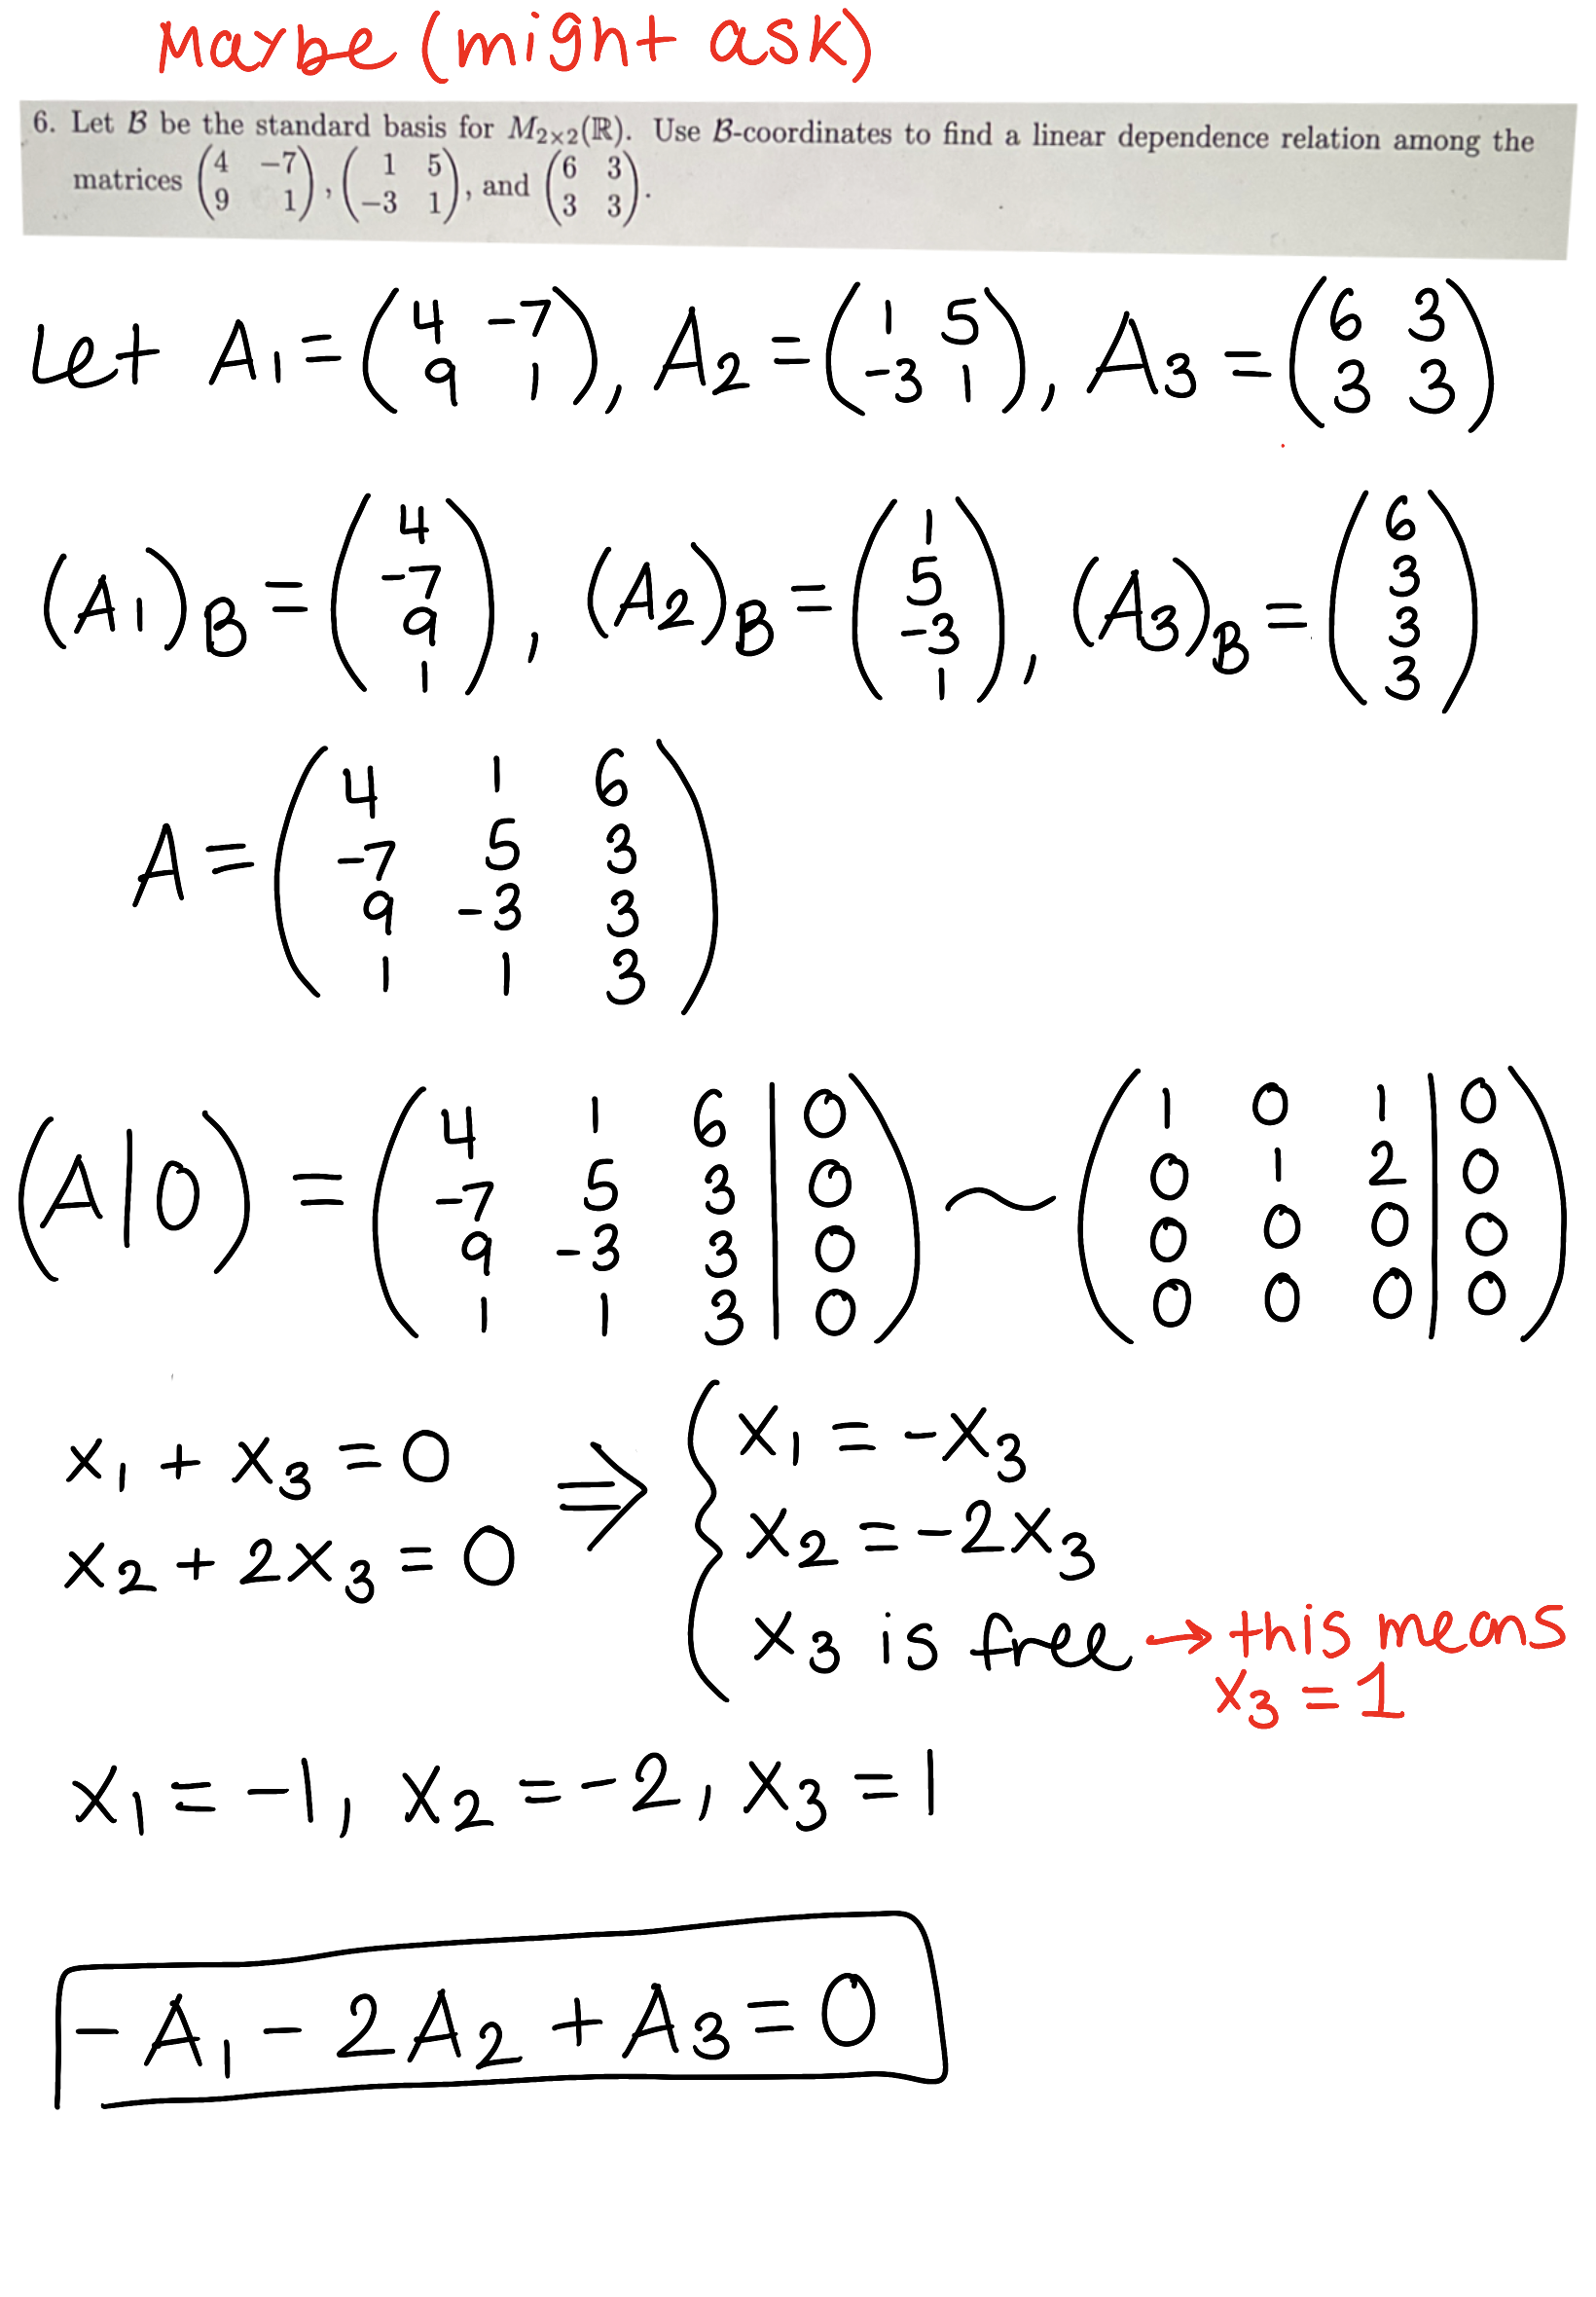 Maybe (might ask)
6. Let B be the standard basis for M2×2(ℝ). Use B-coordinates to find a linear dependence relation among the
matrices (4 −7; 9 1), (1 5; −3 1), and (6 3; 3 3).
Let A1 = (4 -7; 9 1), A2 = (1 5; -3 1), A3 = (6 3; 3 3)
(A1)B = (4; -7; 9; 1), (A2)B = (1; 5; -3; 1), (A3)B = (6; 3; 3; 3)
A = (4 1 6; -7 5 3; 9 -3 3; 1 1 3)
(A|0) = (4 1 6 | 0; -7 5 3 | 0; 9 -3 3 | 0; 1 1 3 | 0) ~ (1 0 1 | 0; 0 1 2 | 0; 0 0 0 | 0; 0 0 0 | 0)
x1 + x3 = 0 ⇒ { x1 = -x3
x2 + 2x3 = 0 x2 = -2x3
x3 is free → this means
x3 = 1
x1 = -1, x2 = -2, x3 = 1
-A1 - 2A2 + A3 = 0